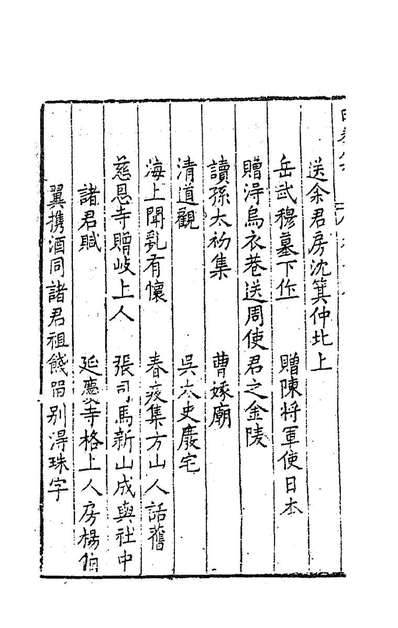 送余君房沈箕仲北上
岳武穆墓下作　贈陳將軍使日本
贈得烏衣巷送周使君之金陵
讀孫太初集　曹娥廟
清道觀　吳太史廢宅
海上聞乱有懷　春夜集方山人話舊
慈恩寺贈岐上人　張司馬新山成與社中
諸君賦　延慶寺格上人房楊伯
翼携酒同諸君祖餞留別得珠字